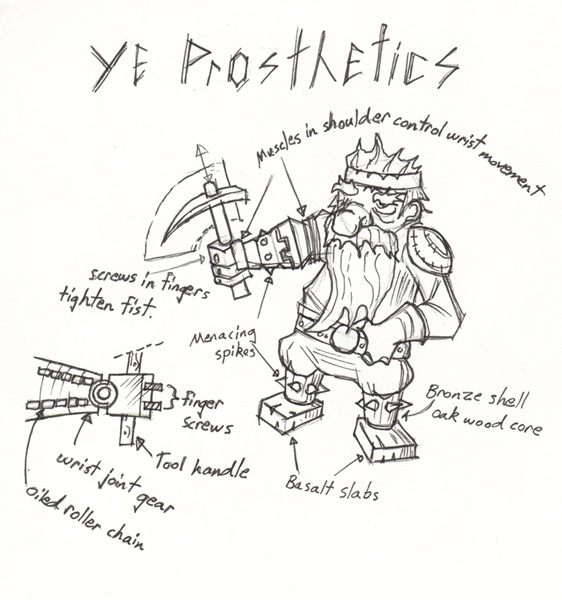 Ye Prosthetics
Muscles in shoulder control wrist movement
screws in fingers
tighten fist.
Menacing
spikes
Bronze shell
oak wood core
finger
screws
Tool handle
wrist joint gear
oiled roller chain
Basalt slabs